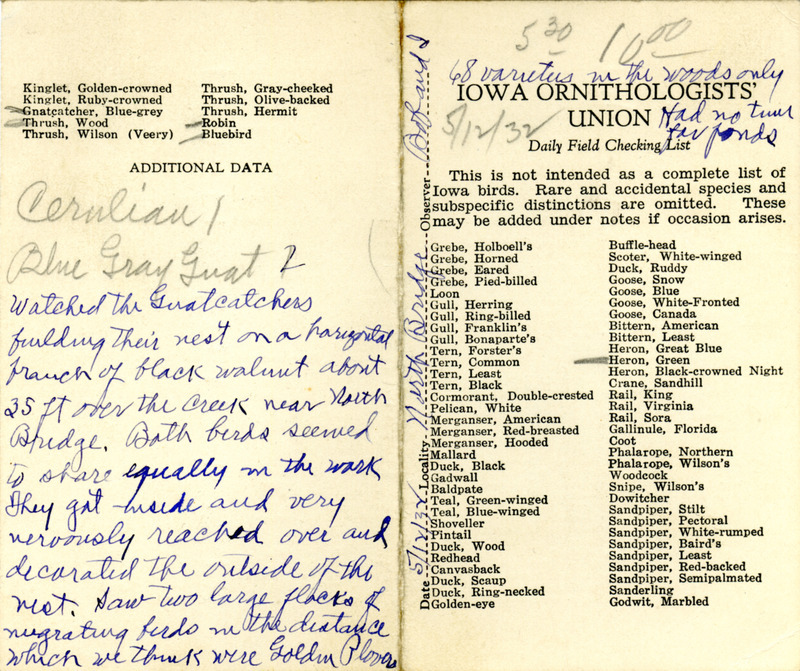 Kinglet, Golden-crowned
Kinglet, Ruby-crowned
Gnatcatcher, Blue-grey
Thrush, Wood
Thrush, Wilson (Veery)
Thrush, Gray-cheeked
Thrush, Olive-backed
Thrush, Hermit
Robin
Bluebird
ADDITIONAL DATA
Cerulian 1
Blue Gray Gnat 2
Watched the Gnatcatchers
building their nest on a horizontal
branch of black walnut about
35 ft over the creek near North
Bridge. Both birds seemed
to share equally in the work
They got inside and very
nervously reached over and
decorated the outside of the
nest. Saw two large flocks of
migrating birds in the distance
which we think were Golden Plovers
Date 5/12/32 Locality North Bridge Observer
5 30 10 00
68 varieties in the woods only
IOWA ORNITHOLOGISTS'
UNION
Had no time
for ponds
5/12/32
Daily Field Checking List
This is not intended as a complete list of
Iowa birds. Rare and accidental species and
subspecific distinctions are omitted. These
may be added under notes if occasion arises.
Grebe, Holboell's
Grebe, Horned
Grebe, Eared
Grebe, Pied-billed
Loon
Gull, Herring
Gull, Ring-billed
Gull, Franklin's
Gull, Bonaparte's
Tern, Forster's
Tern, Common
Tern, Least
Tern, Black
Cormorant, Double-crested
Pelican, White
Merganser, American
Merganser, Red-breasted
Merganser, Hooded
Mallard
Duck, Black
Gadwall
Baldpate
Teal, Green-winged
Teal, Blue-winged
Shoveller
Pintail
Duck, Wood
Redhead
Canvasback
Duck, Scaup
Duck, Ring-necked
Golden-eye
Buffle-head
Scoter, White-winged
Duck, Ruddy
Goose, Snow
Goose, Blue
Goose, White-Fronted
Goose, Canada
Bittern, American
Bittern, Least
Heron, Great Blue
Heron, Green
Heron, Black-crowned Night
Crane, Sandhill
Rail, King
Rail, Virginia
Rail, Sora
Gallinule, Florida
Coot
Phalarope, Northern
Phalarope, Wilson's
Woodcock
Snipe, Wilson's
Dowitcher
Sandpiper, Stilt
Sandpiper, Pectoral
Sandpiper, White-rumped
Sandpiper, Baird's
Sandpiper, Least
Sandpiper, Red-backed
Sandpiper, Semipalmated
Sanderling
Godwit, Marbled